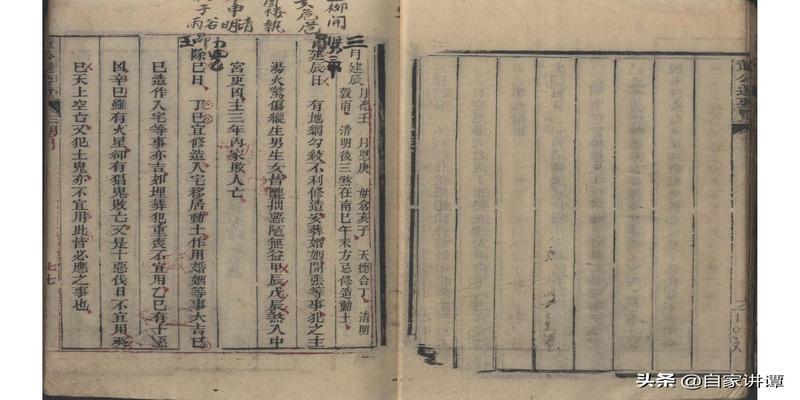 三月建辰 月德壬 月恩庚 母倉亥子 天德合丁 清明
穀雨 清明後三煞在南巳午未方忌修造動土
建辰日 有地網勾絞不利修造安葬婚姻開張等事犯之主
湯火驚傷縱生男生女皆醜拙惡陋無益甲辰戊辰煞入中
宮更凶主三年內家敗人亡
除巳日 丁巳宜修造入宅移居動土作用婚姻等事大吉己
巳造作入宅等事亦吉如埋葬犯重喪不宜用乙巳有十惡
凶辛巳雖有火星卻有猖鬼敗亡又是十惡伐日不宜用癸
巳天上空亡又犯土鬼亦不宜用此皆必應之事也
七七
头条 @自家讲谭